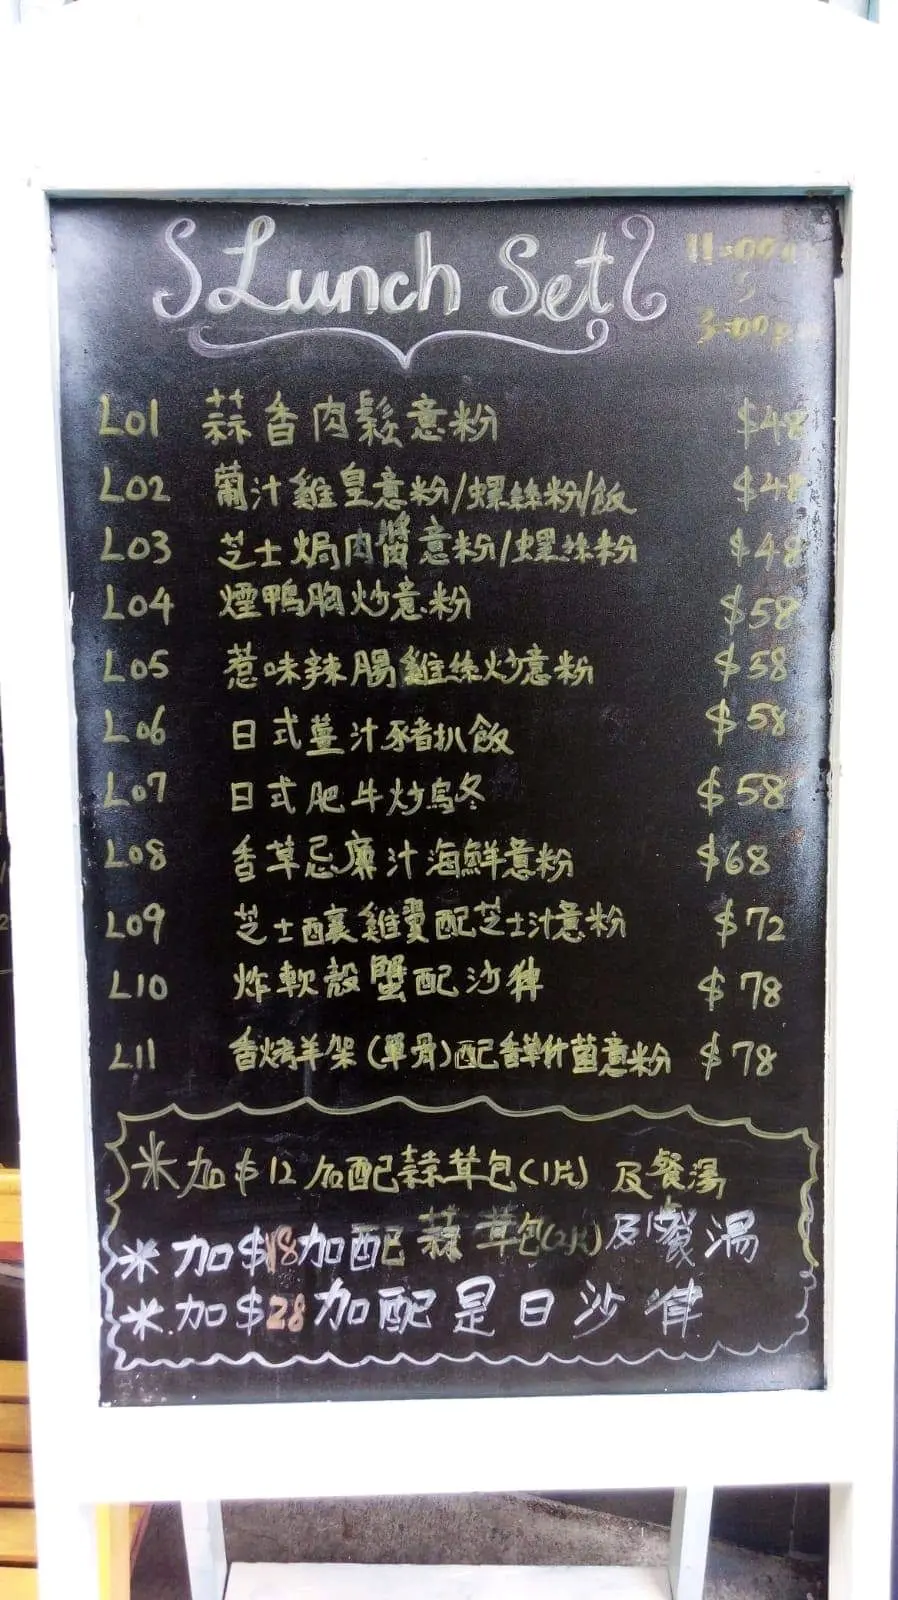 Lunch Set
11:00a.m
3:00p.m
L01 蒜香肉鬆意粉 $48
L02 葡汁雞皇意粉/螺絲粉/飯 $48
L03 芝士焗肉醬意粉/螺絲粉 $48
L04 煙鴨胸炒意粉 $58
L05 惹味辣腸雞絲炒意粉 $58
L06 日式薑汁豬扒飯 $58
L07 日式肥牛炒烏冬 $58
L08 香草忌廉汁海鮮意粉 $68
L09 芝士釀雞翼配芝士汁意粉 $72
L10 炸軟殼蟹配沙律 $78
L11 香烤羊架(單骨)配香草什菌意粉 $78
米加$12加配蒜茸包(1片) 及餐湯
米加$18加配蒜茸包(2片)及餐湯
米加$28加配是日沙律